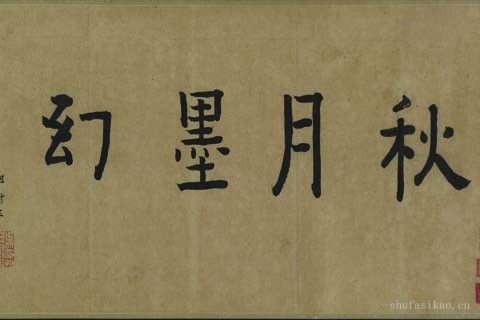 秋月墨幻
shufasikao.cn